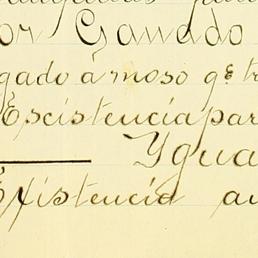 or Ganado
gado á moso qe
Escistencia par
Ygua
Existencia au